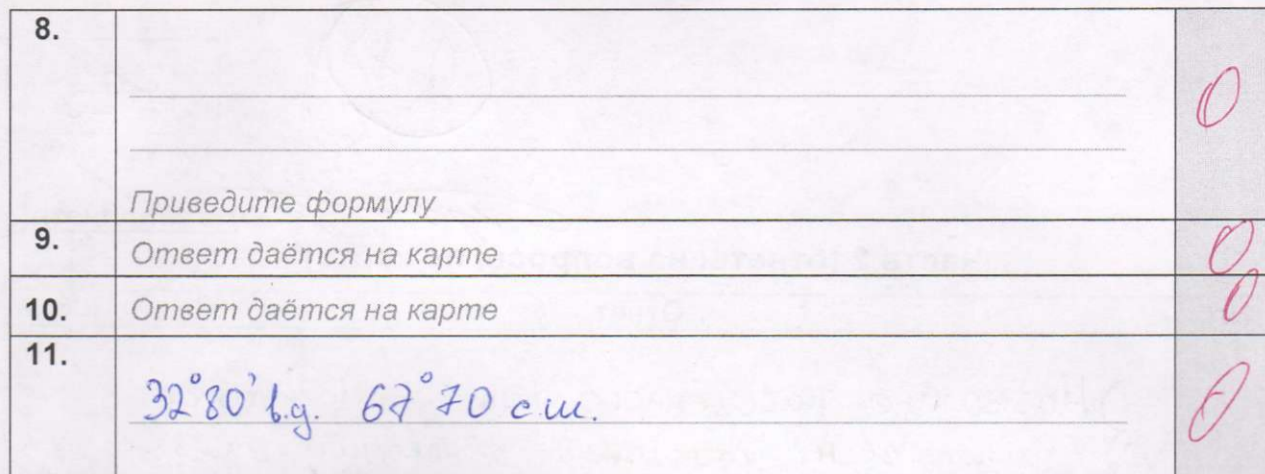 8.
Приведите формулу
0
9. Ответ даётся на карте 0
10. Ответ даётся на карте 0
11.
32°80' в.д. 67°70 с.ш. 0